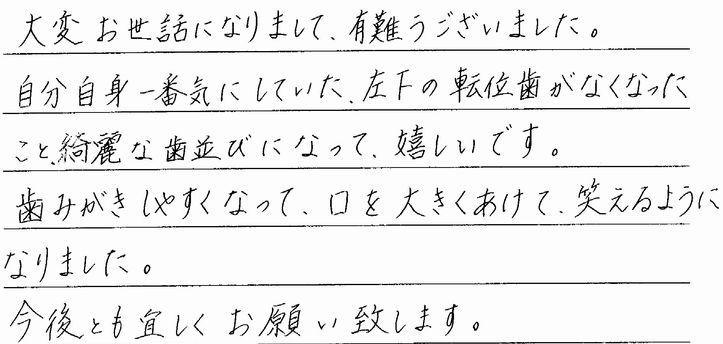 大変お世話になりまして、有難うございました。
自分自身一番気にしていた、左下の転位歯がなくなった
こと、綺麗な歯並びになって、嬉しいです。
歯みがきしやすくなって、口を大きくあけて、笑えるように
なりました。
今後とも宜しくお願い致します。